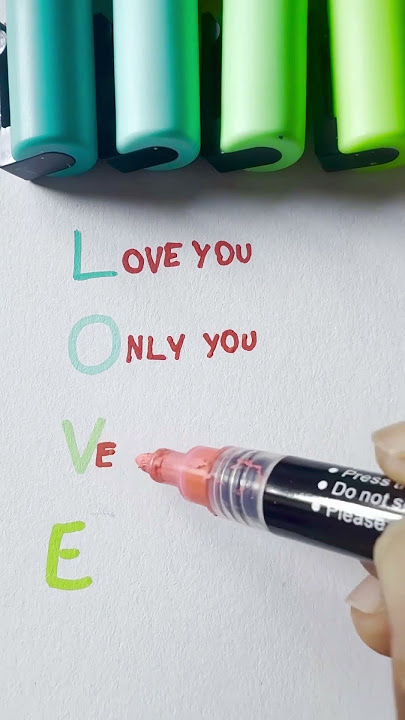 LOVE YOU
ONLY YOU
VE
E
• Press
• Do not
• Please